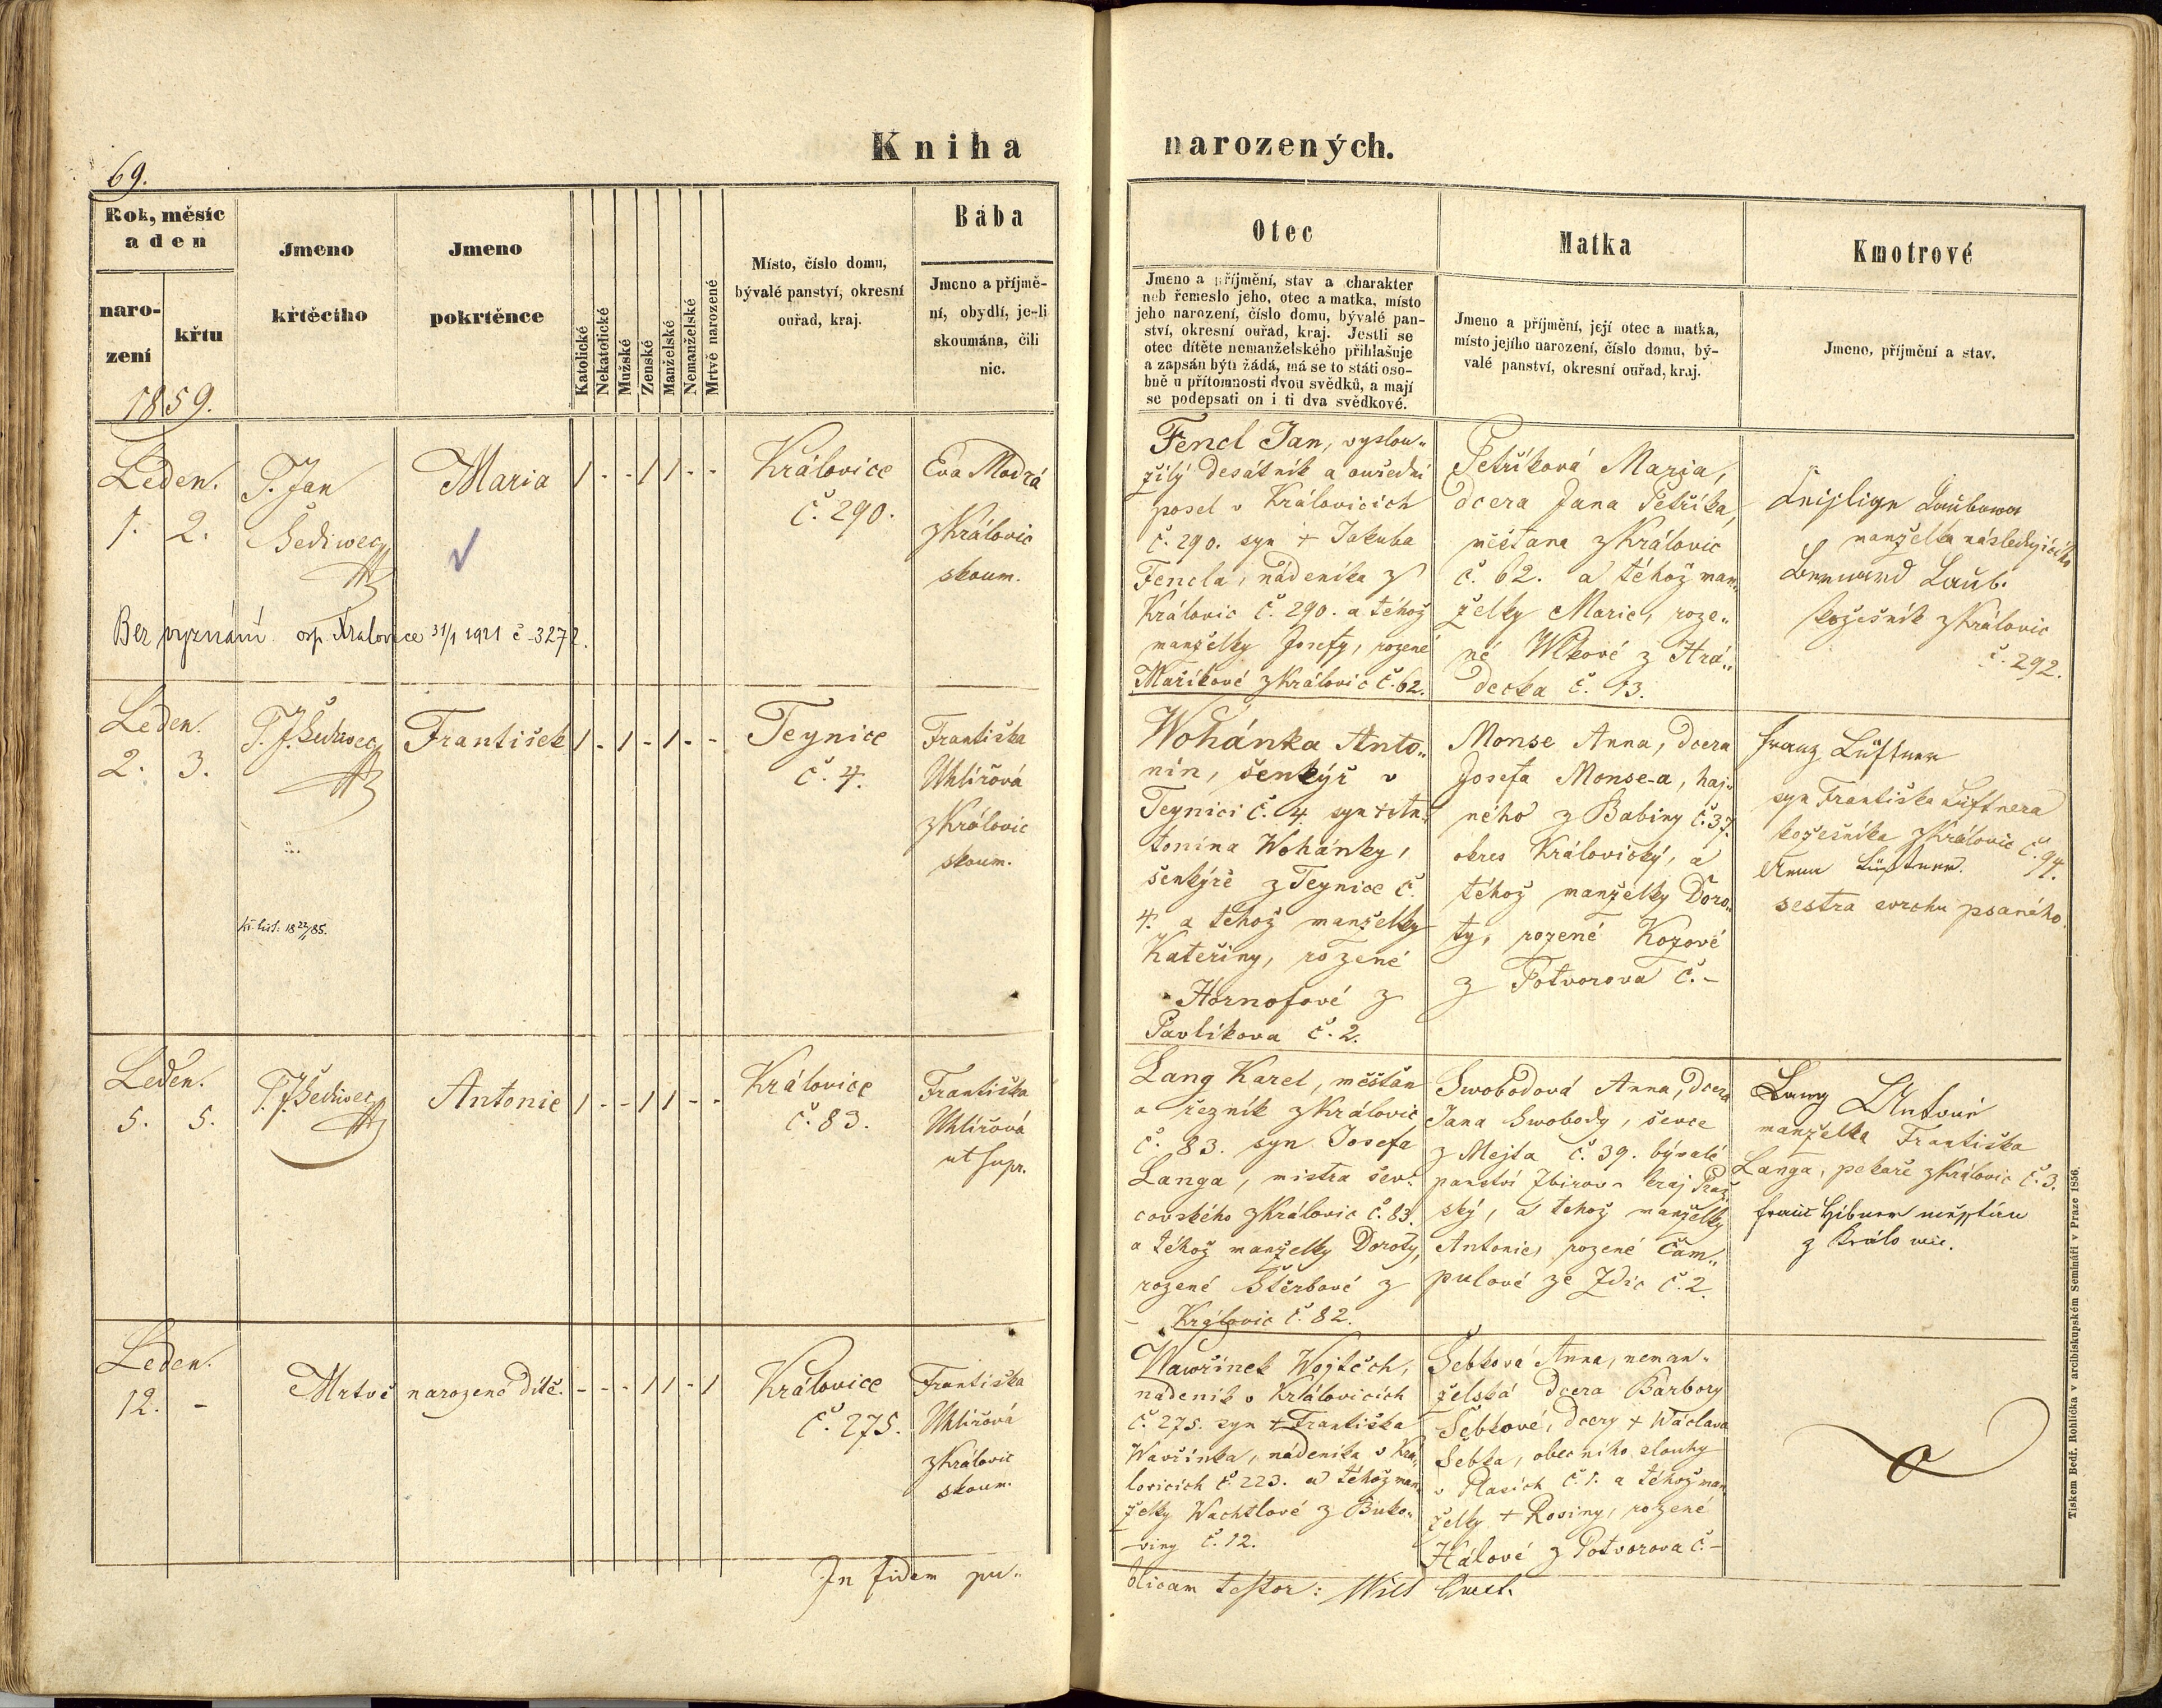 Kniha narozených.
69.
Rok, měsíc
a den
naro-
zení
křtu
Jmeno
křtěcího
Jmeno
pokrtěnce
Katolické
Nekatolické
Mužské
Ženské
Manželské
Nemanželské
Mrtvě narozené
Místo, číslo domu,
bývalé panství, okresní
ouřad, kraj.
Bába
Jmeno a příjmě-
ní, obydlí, je-li
skoumána, čili
nic.
Otec
Jmeno a příjmění, stav a charakter
neb řemeslo jeho, otec a matka, místo
jeho narození, číslo domu, bývalé pan-
ství, okresní ouřad, kraj. Jestli se
otec dítěte nemanželského přihlašuje
a zapsán býti žádá, má se to státi oso-
bně u přítomnosti dvou svědků, a mají
se podepsati on i ti dva svědkové.
Matka
Jmeno a příjmění, její otec a matka,
místo jejího narození, číslo domu, bý-
valé panství, okresní ouřad, kraj.
Kmotrové
Jmeno, příjmění a stav.
1859.
Leden.
1. 2.
P. Jan
Šediwec
Maria
1 - - 1 1 - -
Královice
č. 290.
Eva Modrá
z Královic
skoum.
Bez vyznání osp. Kralovice 31/1 1921 č 3272.
Fencl Jan, vyslou-
žilý desátník a ouřední
posel v Královicích
č. 290. syn + Jakuba
Fencla, nádeníka z
Královic č. 290. a téhož
manželky Josefy, rozené
Maříkové z Královic č. 62.
Petříková Maria,
dcera Jana Petříka,
měšťana z Královic
č. 62. a téhož man-
želky Marie, roze-
né Wlkové z Hrá-
decka č. 13.
Laubowa
manželka následujícího
Bernard Laub.
kožešník z Královic
č. 292.
Leden.
2. 3.
P. J. Šediwec
František
1 - 1 - 1 - -
Teynice
č. 4.
Františka
Uhlířová
z Královic
skoum.
kř. list: 18 22/ 85.
Wohánka Anto-
nín, šenkýř v
Teynici č. 4 syn + An-
tonína Wohánky,
šenkýře z Teynice č.
4. a téhož manželky
Kateřiny, rozené
Hornofové z
Pavlíkova č. 2.
Monse Anna, dcera
Josefa Monse-a, haj-
ného z Babiny č. 37.
okres Královický, a
téhož manželky Doro-
ty, rozené Kozové
z Potvorova č. -
Franz Lüftner
syn Františka Lüftnera
kožešníka z Královic č. 94.
Anna Lüftner.
sestra svrchu psaného.
Leden.
5. 5.
P. J. Šediwec
Antonie
1 - - 1 1 - -
Královice
č. 83.
Františka
Uhlířová
ut supr.
Lang Karel, měšťan
a řezník z Královic
č. 83. syn Josefa
Langa, mistra šev-
covského z Královic č. 83.
a téhož manželky Doroty,
rozené Štěrbové z
Královic č. 82.
Swobodová Anna, dcera
Jana Swobody, ševce
z Mejta č. 39. bývalé
panství Zbirov - kraj Praž-
ský, a téhož manželky
Antonie, rozené Čam-
pulové ze Zdic č. 2.
Lang Antonie
manželka Františka
Langa, pekaře z Královic č. 3.
Franc Hibner
z Královic.
Leden.
12. -
Mrtvě narozené dítě.
- - - 1 1 - 1
Královice
č. 275.
Františka
Uhlířová
z Královic
skoum.
Wawřinek Wojtěch,
nádeník v Královicích
č. 275. syn + Františka
Wavřinka, nádeníka v Krá-
lovicích č. 223. a téhož man-
želky Wachtlové z Buko-
viny č. 12.
Šebková Anna, neman-
želská dcera Barbory
Šebkové, dcery + Wáclava
Šebka, obecního slouhy
v Plasích č. 1. a téhož man-
želky + Rosiny, rozené
Hálové z Potvorova č. -
In fidem pu-
blicam testor:
Tiskem Bedř. Rohlíčka v arcibiskupském Semináři v Praze 1856.